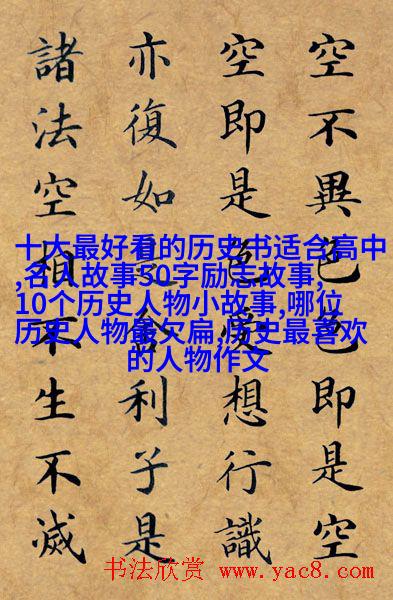 空不異色色即是空
空即是色愛想行識
亦復如是舍利子是
諸法空相不生不滅
十大最好看的历史书适合高中
,名人故事50字励志故事,
10个历史人物小故事,哪位
历史人物最欠扁,历史最喜欢
的人物作文
书法欣赏 www.yac8.com